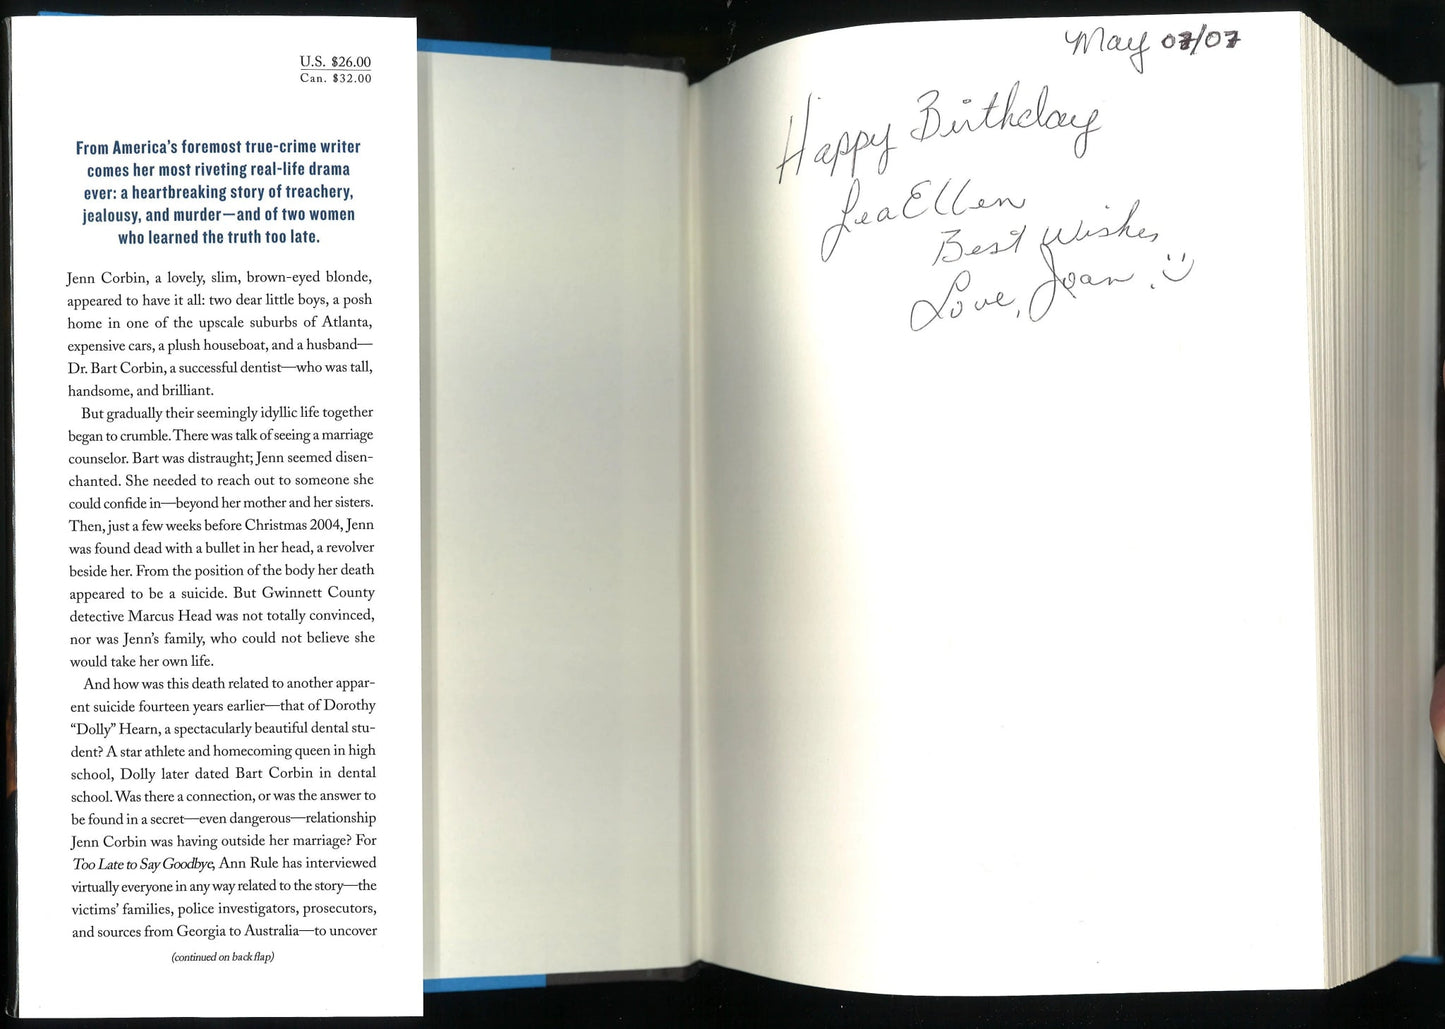 U.S. $26.00
Can. $32.00
From America's foremost true-crime writer
comes her most riveting real-life drama
ever: a heartbreaking story of treachery,
jealousy, and murder—and of two women
who learned the truth too late.
Jenn Corbin, a lovely, slim, brown-eyed blonde,
appeared to have it all: two dear little boys, a posh
home in one of the upscale suburbs of Atlanta,
expensive cars, a plush houseboat, and a husband—
Dr. Bart Corbin, a successful dentist—who was tall,
handsome, and brilliant.
But gradually their seemingly idyllic life together
began to crumble. There was talk of seeing a marriage
counselor. Bart was distraught; Jenn seemed disen-
chanted. She needed to reach out to someone she
could confide in—beyond her mother and her sisters.
Then, just a few weeks before Christmas 2004, Jenn
was found dead with a bullet in her head, a revolver
beside her. From the position of the body her death
appeared to be a suicide. But Gwinnett County
detective Marcus Head was not totally convinced,
nor was Jenn's family, who could not believe she
would take her own life.
And how was this death related to another appar-
ent suicide fourteen years earlier—that of Dorothy
“Dolly” Hearn, a spectacularly beautiful dental stu-
dent? A star athlete and homecoming queen in high
school, Dolly later dated Bart Corbin in dental
school. Was there a connection, or was the answer to
be found in a secret—even dangerous—relationship
Jenn Corbin was having outside her marriage? For
Too Late to Say Goodbye, Ann Rule has interviewed
virtually everyone in any way related to the story—the
victims' families, police investigators, prosecutors,
and sources from Georgia to Australia—to uncover
(continued on back flap)
May 07/07
Happy Birthday
LeaEllen
Best Wishes
Love, Joan. :)